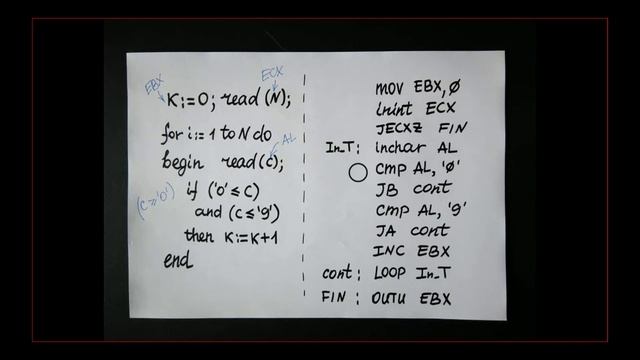 EBX
ECX
K:=0; read (N);
for i:=1 to N do
AL
begin read(c);
(c≥'0')
if ('0'≤c)
and (c≤'9')
then K:=K+1
end
MOV EBX, 0
inint ECX
JECXZ FIN
In_T: inchar AL
CMP AL, '0'
JB cont
CMP AL, '9'
JA cont
INC EBX
cont: LOOP In_T
FIN: OUTU EBX